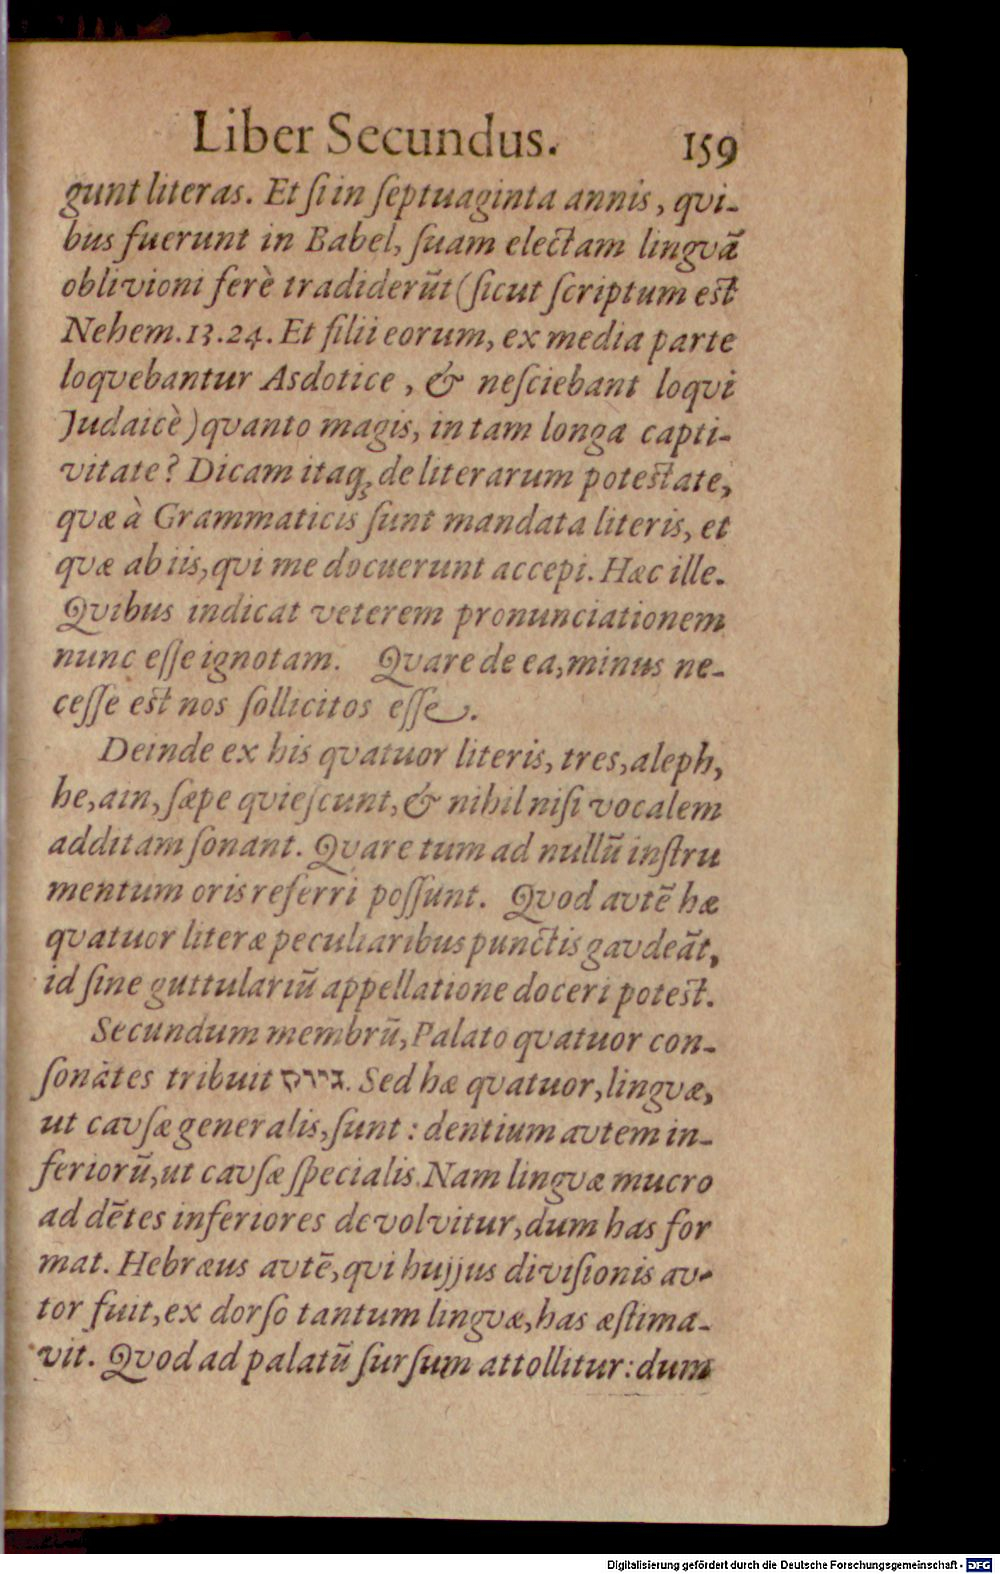 Liber Secundus. 159
gunt literas. Et ſi in ſeptuaginta annis, qvi-
bus fuerunt in Babel, ſuam electam lingvā
oblivioni ferè tradiderūt (ſicut ſcriptum eſt
Nehem. 13. 24. Et filii eorum, ex media parte
loqvebantur Asdotice, & neſciebant loqvi
Judaicè) qvanto magis, in tam longa capti-
vitate? Dicam itaq; de literarum poteſtate,
qvæ à Grammaticis ſunt mandata literis, et
qvæ ab iis, qvi me docuerunt accepi. Hæc ille.
Qvibus indicat veterem pronunciationem
nunc eſſe ignotam. Qvare de ea, minus ne-
ceſſe eſt nos ſollicitos eſſe.
Deinde ex his qvatuor literis, tres, aleph,
he, ain, ſæpe qvieſcunt, & nihil niſi vocalem
additam ſonant. Qvare tum ad nullū inſtru
mentum oris referri poſſunt. Qvod avtē hæ
qvatuor literæ peculiaribus punctis gavdeāt,
id ſine guttulariū appellatione doceri poteſt.
Secundum membrū, Palato qvatuor con-
ſonātes tribuit גיכק. Sed hæ qvatuor, lingvæ,
ut cavſæ generalis, ſunt: dentium avtem in-
feriorū, ut cavſæ ſpecialis. Nam lingvæ mucro
ad dētes inferiores devolvitur, dum has for
mat. Hebræus avtē, qvi hujjus diviſionis av-
tor fuit, ex dorſo tantum lingvæ, has æſtima-
vit. Qvod ad palatū ſurſum attollitur: dum
Digitalisierung gefördert durch die Deutsche Forschungsgemeinschaft - DFG